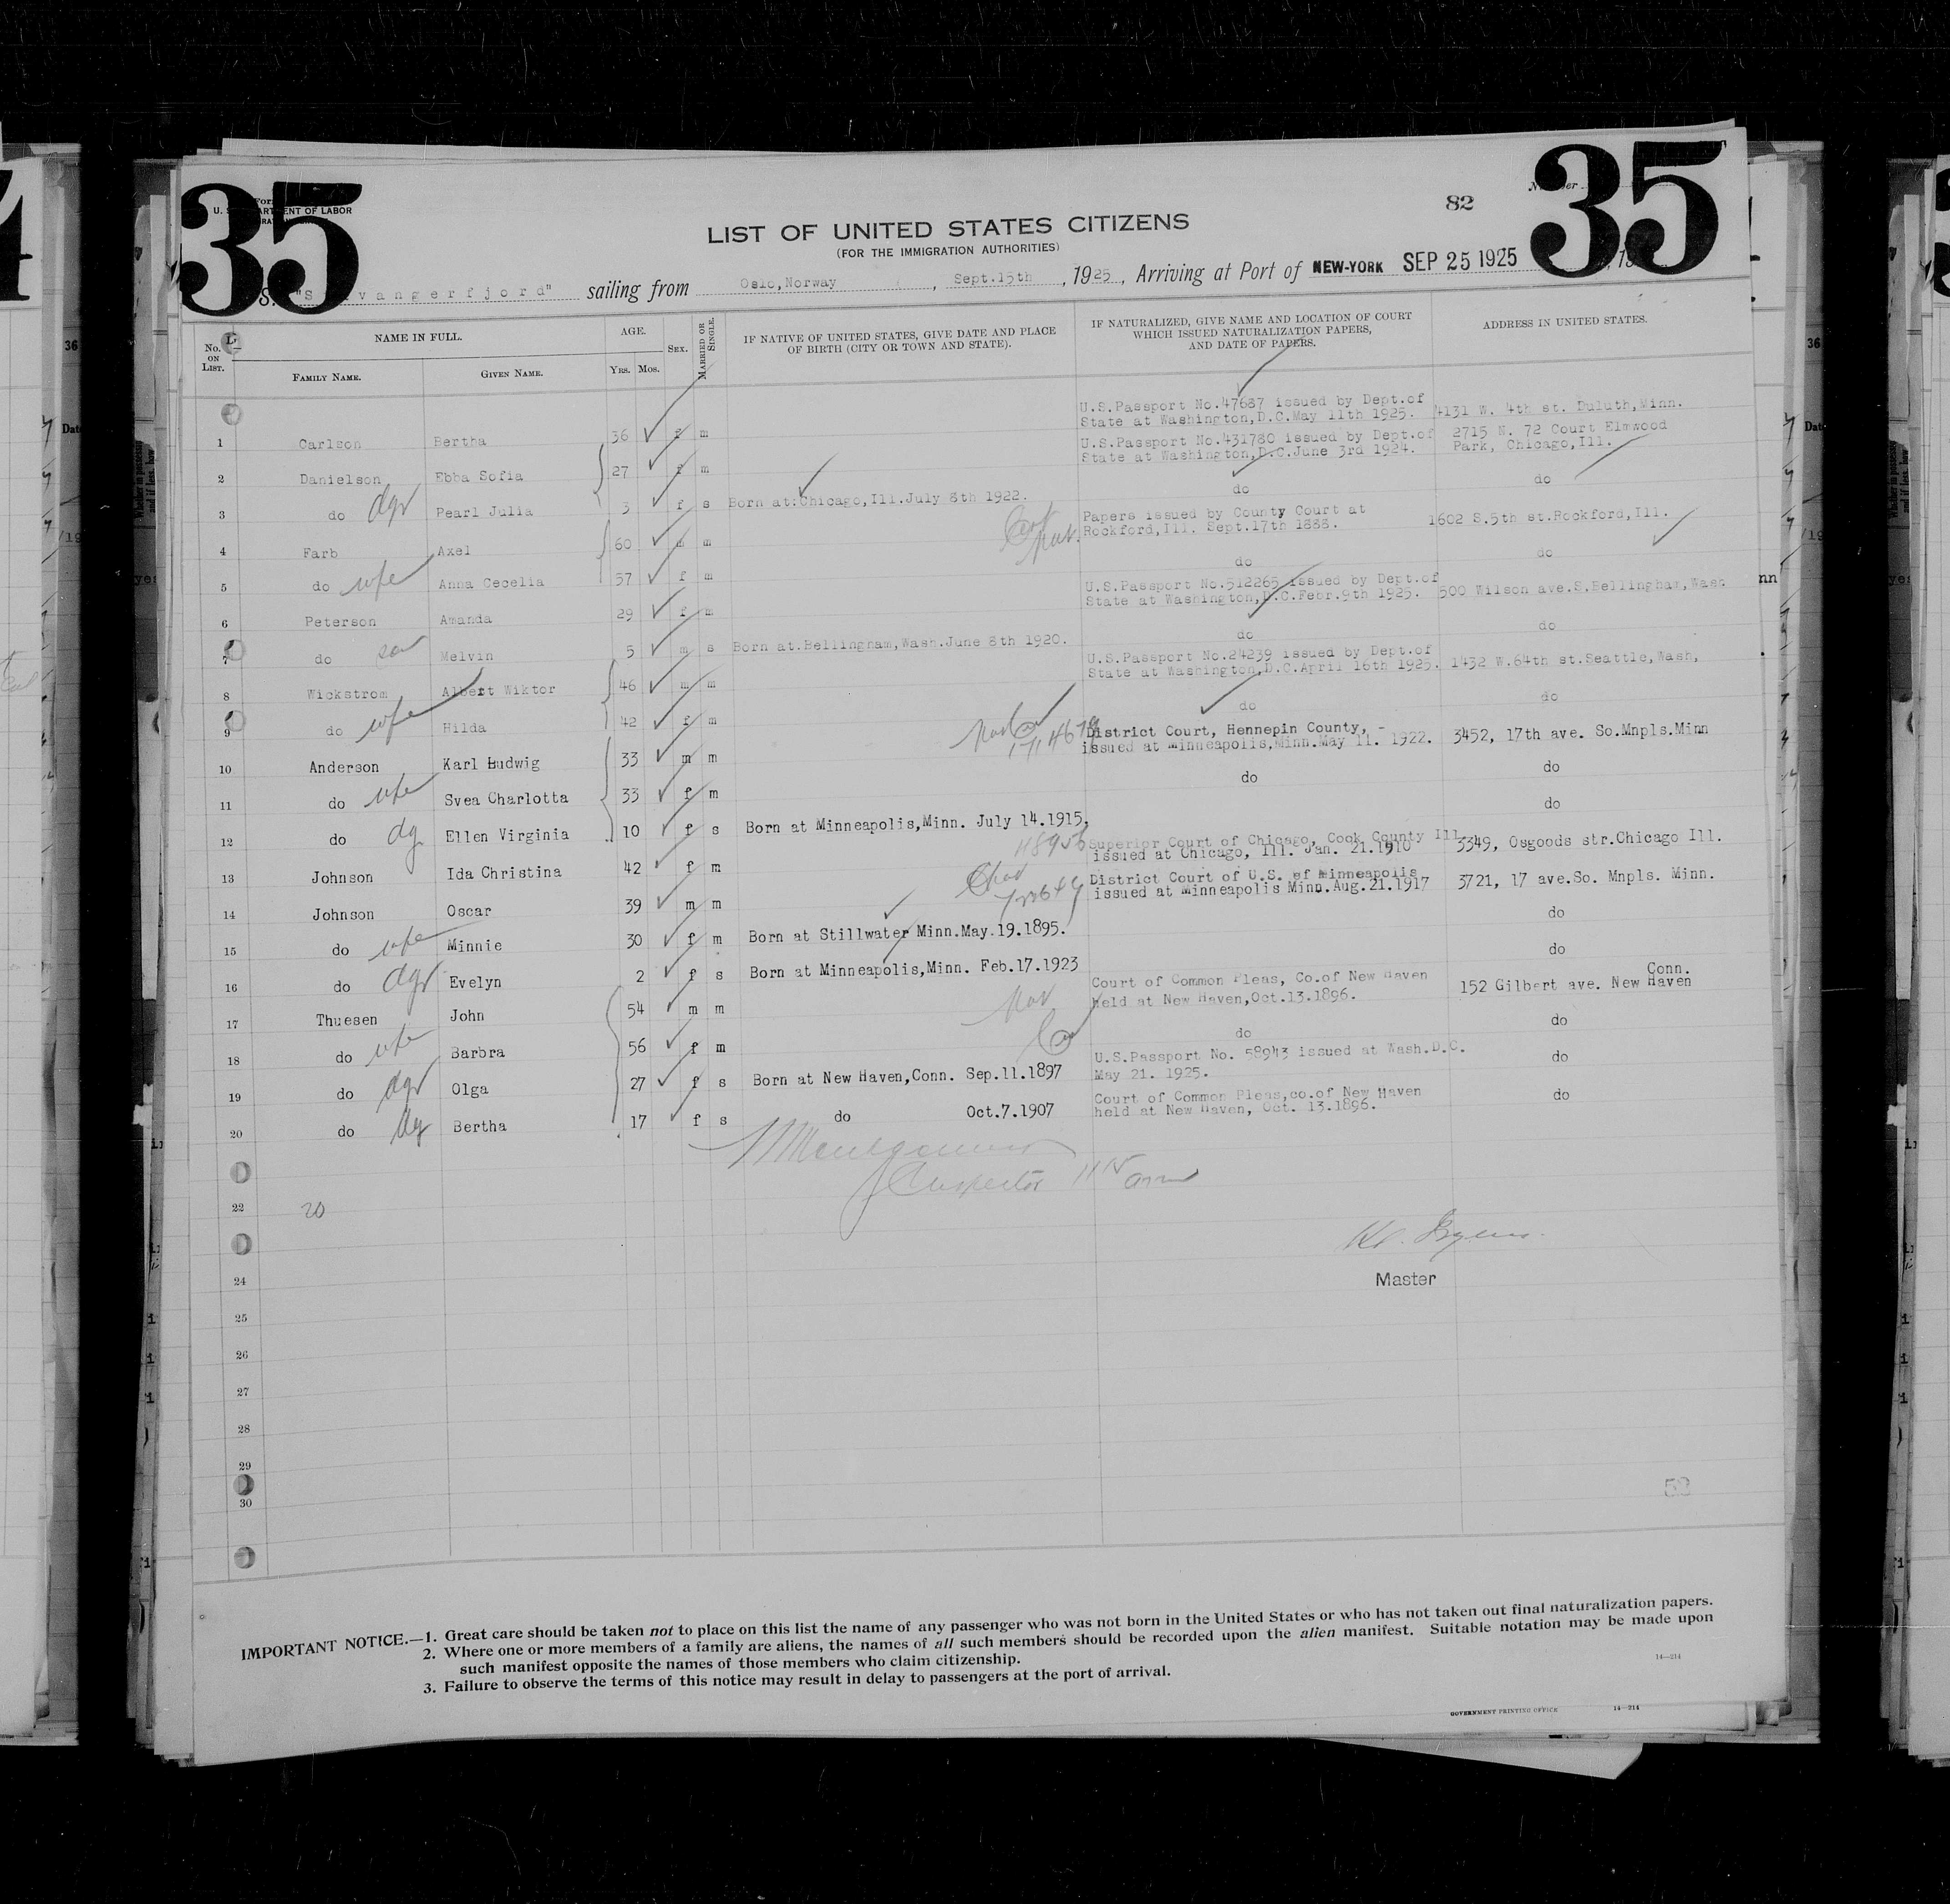 35 35
82
U. S. DEPARTMENT OF LABOR
LIST OF UNITED STATES CITIZENS
(FOR THE IMMIGRATION AUTHORITIES)
S. "S vangerfjord" sailing from Oslo,Norway, Sept.15th, 1925, Arriving at Port of NEW-YORK SEP 25 1925, 19
No. ON LIST. NAME IN FULL. AGE. SEX. MARRIED OR SINGLE. IF NATIVE OF UNITED STATES, GIVE DATE AND PLACE OF BIRTH (CITY OR TOWN AND STATE). IF NATURALIZED, GIVE NAME AND LOCATION OF COURT WHICH ISSUED NATURALIZATION PAPERS, AND DATE OF PAPERS. ADDRESS IN UNITED STATES.
FAMILY NAME. GIVEN NAME. YRS. MOS.
1 Carlson Bertha 36 f m U.S.Passport No.47687 issued by Dept.of State at Washington,D.C.May 11th 1925. 4131 W. 4th st. Duluth,Minn.
2 Danielson Ebba Sofia 27 f m U.S.Passport No.431780 issued by Dept.of State at Washington,D.C.June 3rd 1924. 2715 N. 72 Court Elmwood Park, Chicago,Ill.
3 do dgr Pearl Julia 3 f s Born at:Chicago,Ill.July 8th 1922. do do
4 Farb Axel 60 m m Papers issued by County Court at Rockford,Ill. Sept.17th 1888. 1602 S.5th st.Rockford,Ill.
5 do wife Anna Cecelia 57 f m do do
6 Peterson Amanda 29 f m U.S.Passport No.512265 issued by Dept.of State at Washington,D.C.Febr.9th 1925. 500 Wilson ave.S.Bellingham,Wash
7 do son Melvin 5 m s Born at.Bellingham,Wash.June 8th 1920. do do
8 Wickstrom Albert Wiktor 46 m m U.S.Passport No.24239 issued by Dept.of State at Washington,D.C.April 16th 1925. 1432 W.64th st.Seattle,Wash,
9 do wife Hilda 42 f m do do
10 Anderson Karl Ludwig 33 m m District Court, Hennepin County, - issued at Minneapolis,Minn.May 11. 1922. 3452, 17th ave. So.Mnpls.Minn
11 do wife Svea Charlotta 33 f m do do
12 do dg Ellen Virginia 10 f s Born at Minneapolis,Minn. July 14.1915, do
13 Johnson Ida Christina 42 f m Superior Court of Chicago, Cook County Ill. issued at Chicago, Ill. Jan. 21.1910 3349, Osgoods str.Chicago Ill.
14 Johnson Oscar 39 m m District Court of U.S. of Minneapolis issued at Minneapolis Minn.Aug.21.1917 3721, 17 ave.So. Mnpls. Minn.
15 do wife Minnie 30 f m Born at Stillwater Minn.May.19.1895. do
16 do dgr Evelyn 2 f s Born at Minneapolis,Minn. Feb.17.1923 do
17 Thuesen John 54 m m Court of Common Pleas, Co.of New Haven held at New Haven,Oct.13.1896. 152 Gilbert ave. New Haven Conn.
18 do wife Barbra 56 f m do do
19 do dgr Olga 27 f s Born at New Haven,Conn. Sep.11.1897 U.S.Passport No. 58943 issued at Wash.D.C. May 21. 1925. do
20 do dg Bertha 17 f s do Oct.7.1907 Court of Common Pleas,co.of New Haven held at New Haven, Oct. 13.1896. do
Inspector
22 20
24 Master
25
26
27
28
29
30
IMPORTANT NOTICE.—1. Great care should be taken not to place on this list the name of any passenger who was not born in the United States or who has not taken out final naturalization papers.
2. Where one or more members of a family are aliens, the names of all such members should be recorded upon the alien manifest. Suitable notation may be made upon
such manifest opposite the names of those members who claim citizenship.
3. Failure to observe the terms of this notice may result in delay to passengers at the port of arrival.
14—214
GOVERNMENT PRINTING OFFICE 14—214